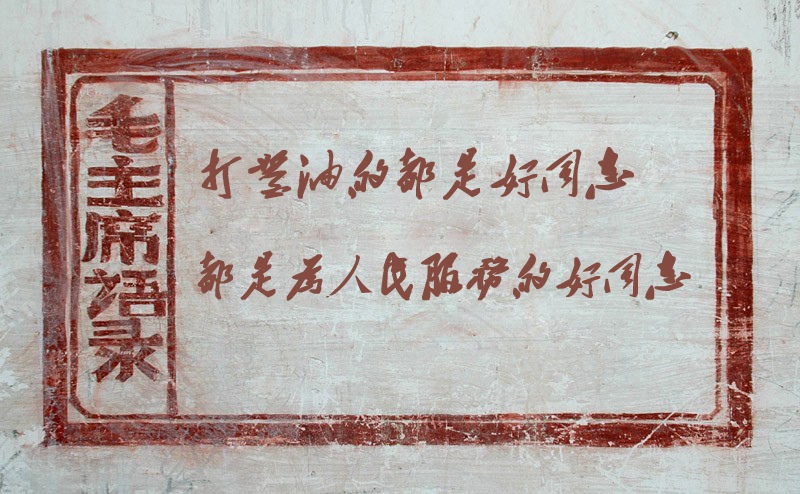 毛主席语录
打酱油的都是好同志
都是为人民服务的好同志